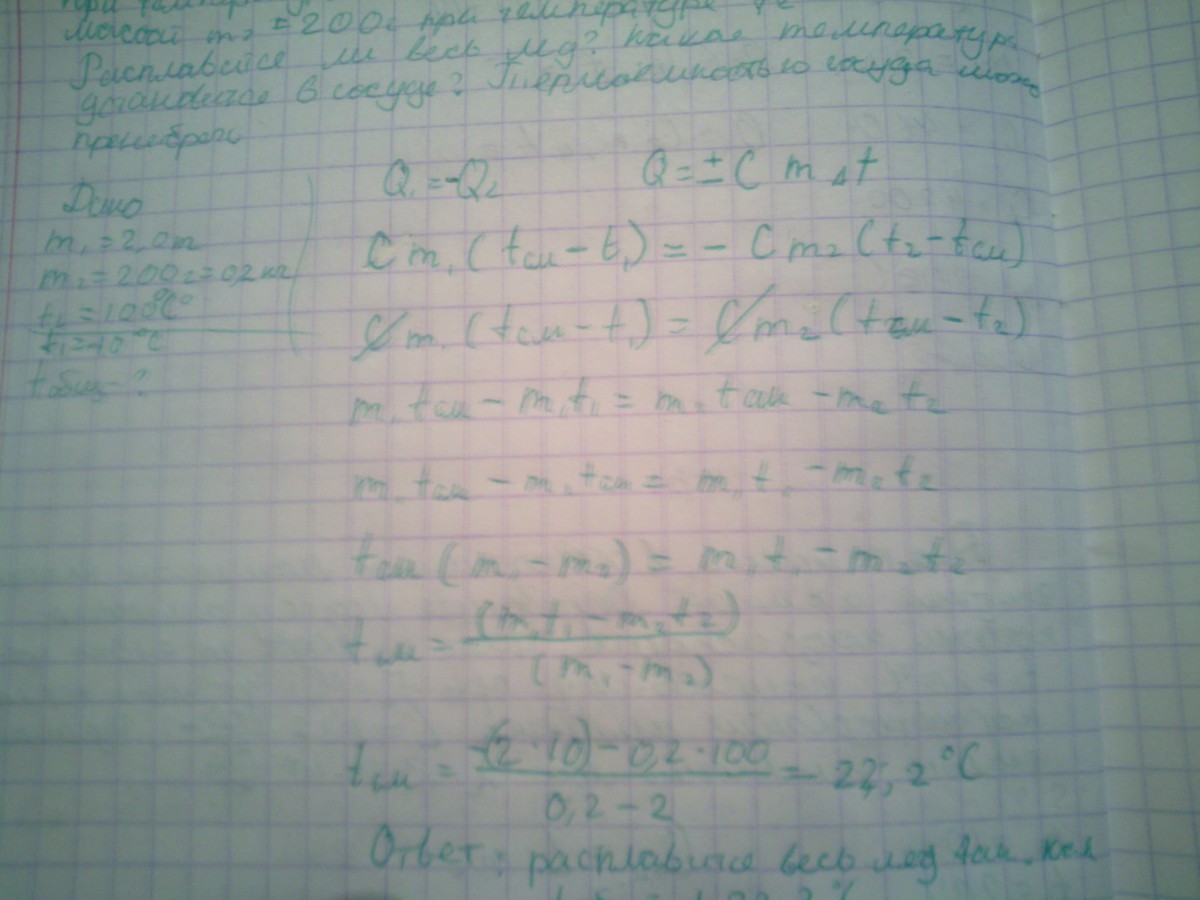 при
массой m₂ = 200г при температуре t₂
Расплавится ли весь лед? Какая температура
установится в сосуде? Теплоемкостью сосуда можно
пренебречь
Дано
m₁ = 2,0
m₂ = 200г = 0,2 кг
t₂ = 100°C
t₁ = -10°C
tобщ - ?
Q₁ = -Q₂ Q = ± C m Δt
C m₁ (tсм - t₁) = - C m₂ (t₂ - tсм)
C m₁ (tсм - t₁) = C m₂ (tсм - t₂)
m₁ tсм - m₁ t₁ = m₂ tсм - m₂ t₂
m₁ tсм - m₂ tсм = m₁ t₁ - m₂ t₂
tсм (m₁ - m₂) = m₁ t₁ - m₂ t₂
tсм = (m₁ t₁ - m₂ t₂) / (m₁ - m₂)
tсм = -(2 · 10) - 0,2 · 100 / 0,2 - 2 = 22,2°C
Ответ: расплавится весь лед так как